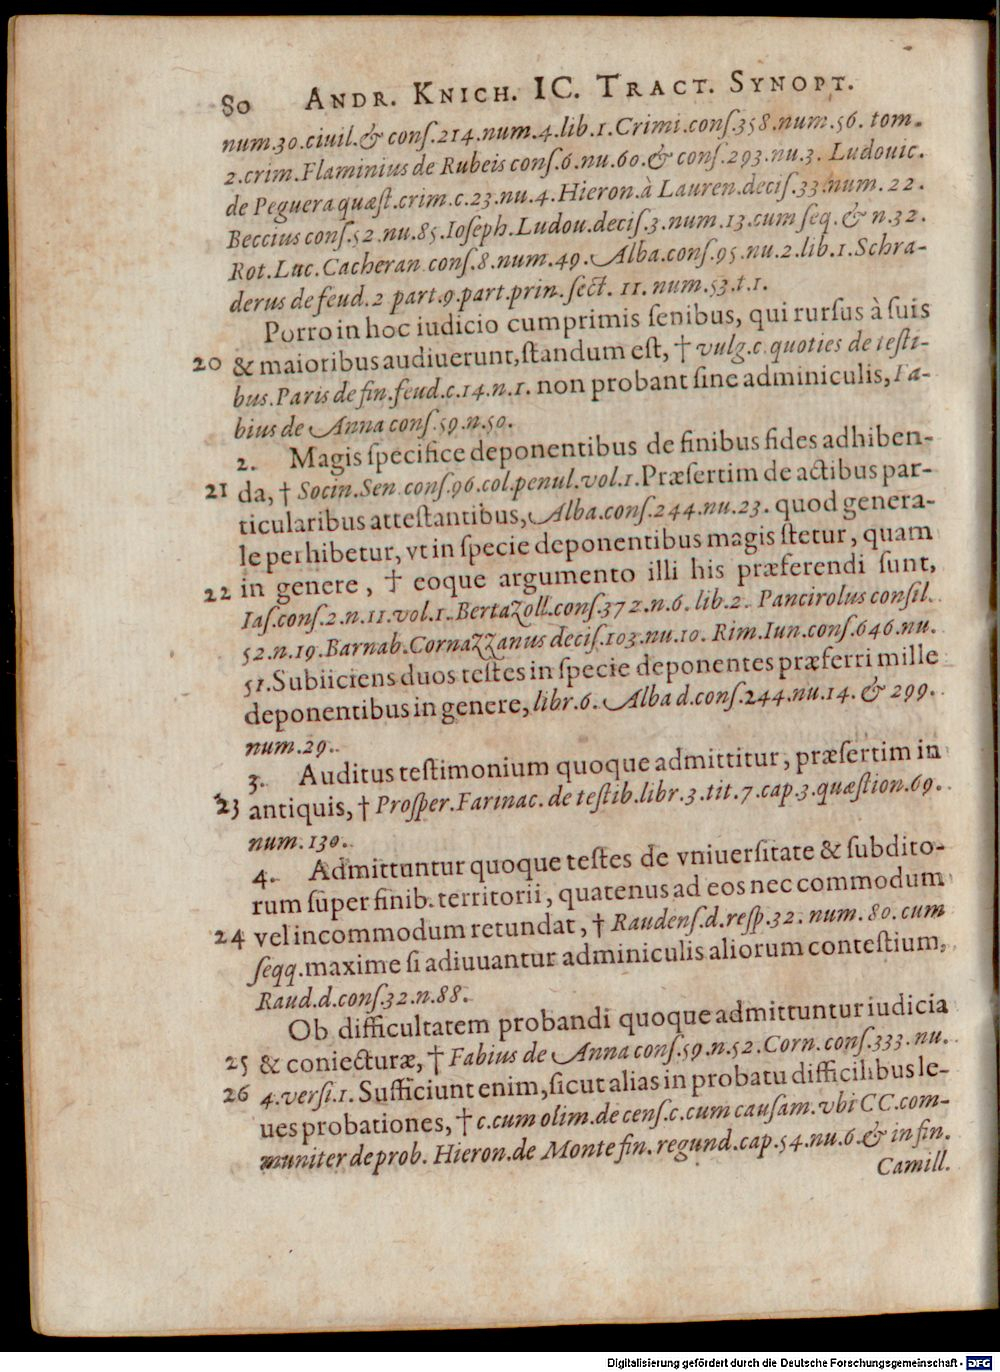 80 ANDR. KNICH. IC. TRACT. SYNOPT.
num.30.ciuil.& conſ.214.num.4.lib.1.Crimi.conſ.358.num.56. tom.
2.crim.Flaminius de Rubeis conſ.6.nu.60.& conſ.293.nu.3. Ludouic.
de Peguera quæſt.crim.c.23.nu.4.Hieron.à Lauren.deciſ.33.num.22.
Beccius conſ.52.nu.85.Ioſeph.Ludou.deciſ.3.num.13.cum ſeq.& n.32.
Rot.Luc.Cacheran conſ.8.num.49.Alba.conſ.95.nu.2.lib.1.Schra-
derus de feud.2 part.9.part.prin.ſect. 11. num.53.t.1.
Porro in hoc iudicio cumprimis ſenibus, qui rurſus à ſuis
20 & maioribus audiuerunt,ſtandum eſt, † vulg.c.quoties de teſti-
bus.Paris de fin.feud.c.14.n.1. non probant ſine adminiculis, Fa-
bius de Anna conſ.59.n.50.
2. Magis ſpecifice deponentibus de finibus fides adhiben-
21 da, † Socin.Sen.conſ.96.col.penul.vol.1.Præſertim de actibus par-
ticularibus atteſtantibus, Alba.conſ.244.nu.23. quod genera-
le perhibetur, vt in ſpecie deponentibus magis ſtetur, quam
22 in genere, † eoque argumento illi his præferendi ſunt,
Iaſ.conſ.2.n.11.vol.1.Bertazoll.conſ.372.n.6.lib.2. Pancirolus conſil.
52.n.19.Barnab.Cornazzanus deciſ.103.nu.10. Rim.Iun.conſ.646.nu.
51.Subiiciens duos teſtes in ſpecie deponentes præferri mille
deponentibus in genere, libr.6. Alba d.conſ.244.nu.14. & 299.
num.29.
3. Auditus teſtimonium quoque admittitur, præſertim in
23 antiquis, † Proſper.Farinac. de teſtib.libr.3.tit.7.cap.3.quæſtion.69.
num.130.
4. Admittuntur quoque teſtes de vniuerſitate & ſubdito-
rum ſuper finib. territorii, quatenus ad eos nec commodum
24 vel incommodum retundat, † Raudenſ.d.reſp.32. num.80. cum
ſeqq.maxime ſi adiuuantur adminiculis aliorum conteſtium,
Raud.d.conſ.32.n.88.
Ob difficultatem probandi quoque admittuntur iudicia
25 & coniecturæ, † Fabius de Anna conſ.59.n.52.Corn.conſ.333.nu.
26 4.verſi.1. Sufficiunt enim,ſicut alias in probatu difficilibus le-
ues probationes, † c.cum olim.de cenſ.c.cum cauſam.vbi CC.com-
muniter de prob. Hieron.de Monte fin. regund.cap.54.nu.6.& in fin.
Camill.
Digitalisierung gefördert durch die Deutsche Forschungsgemeinschaft - DFG